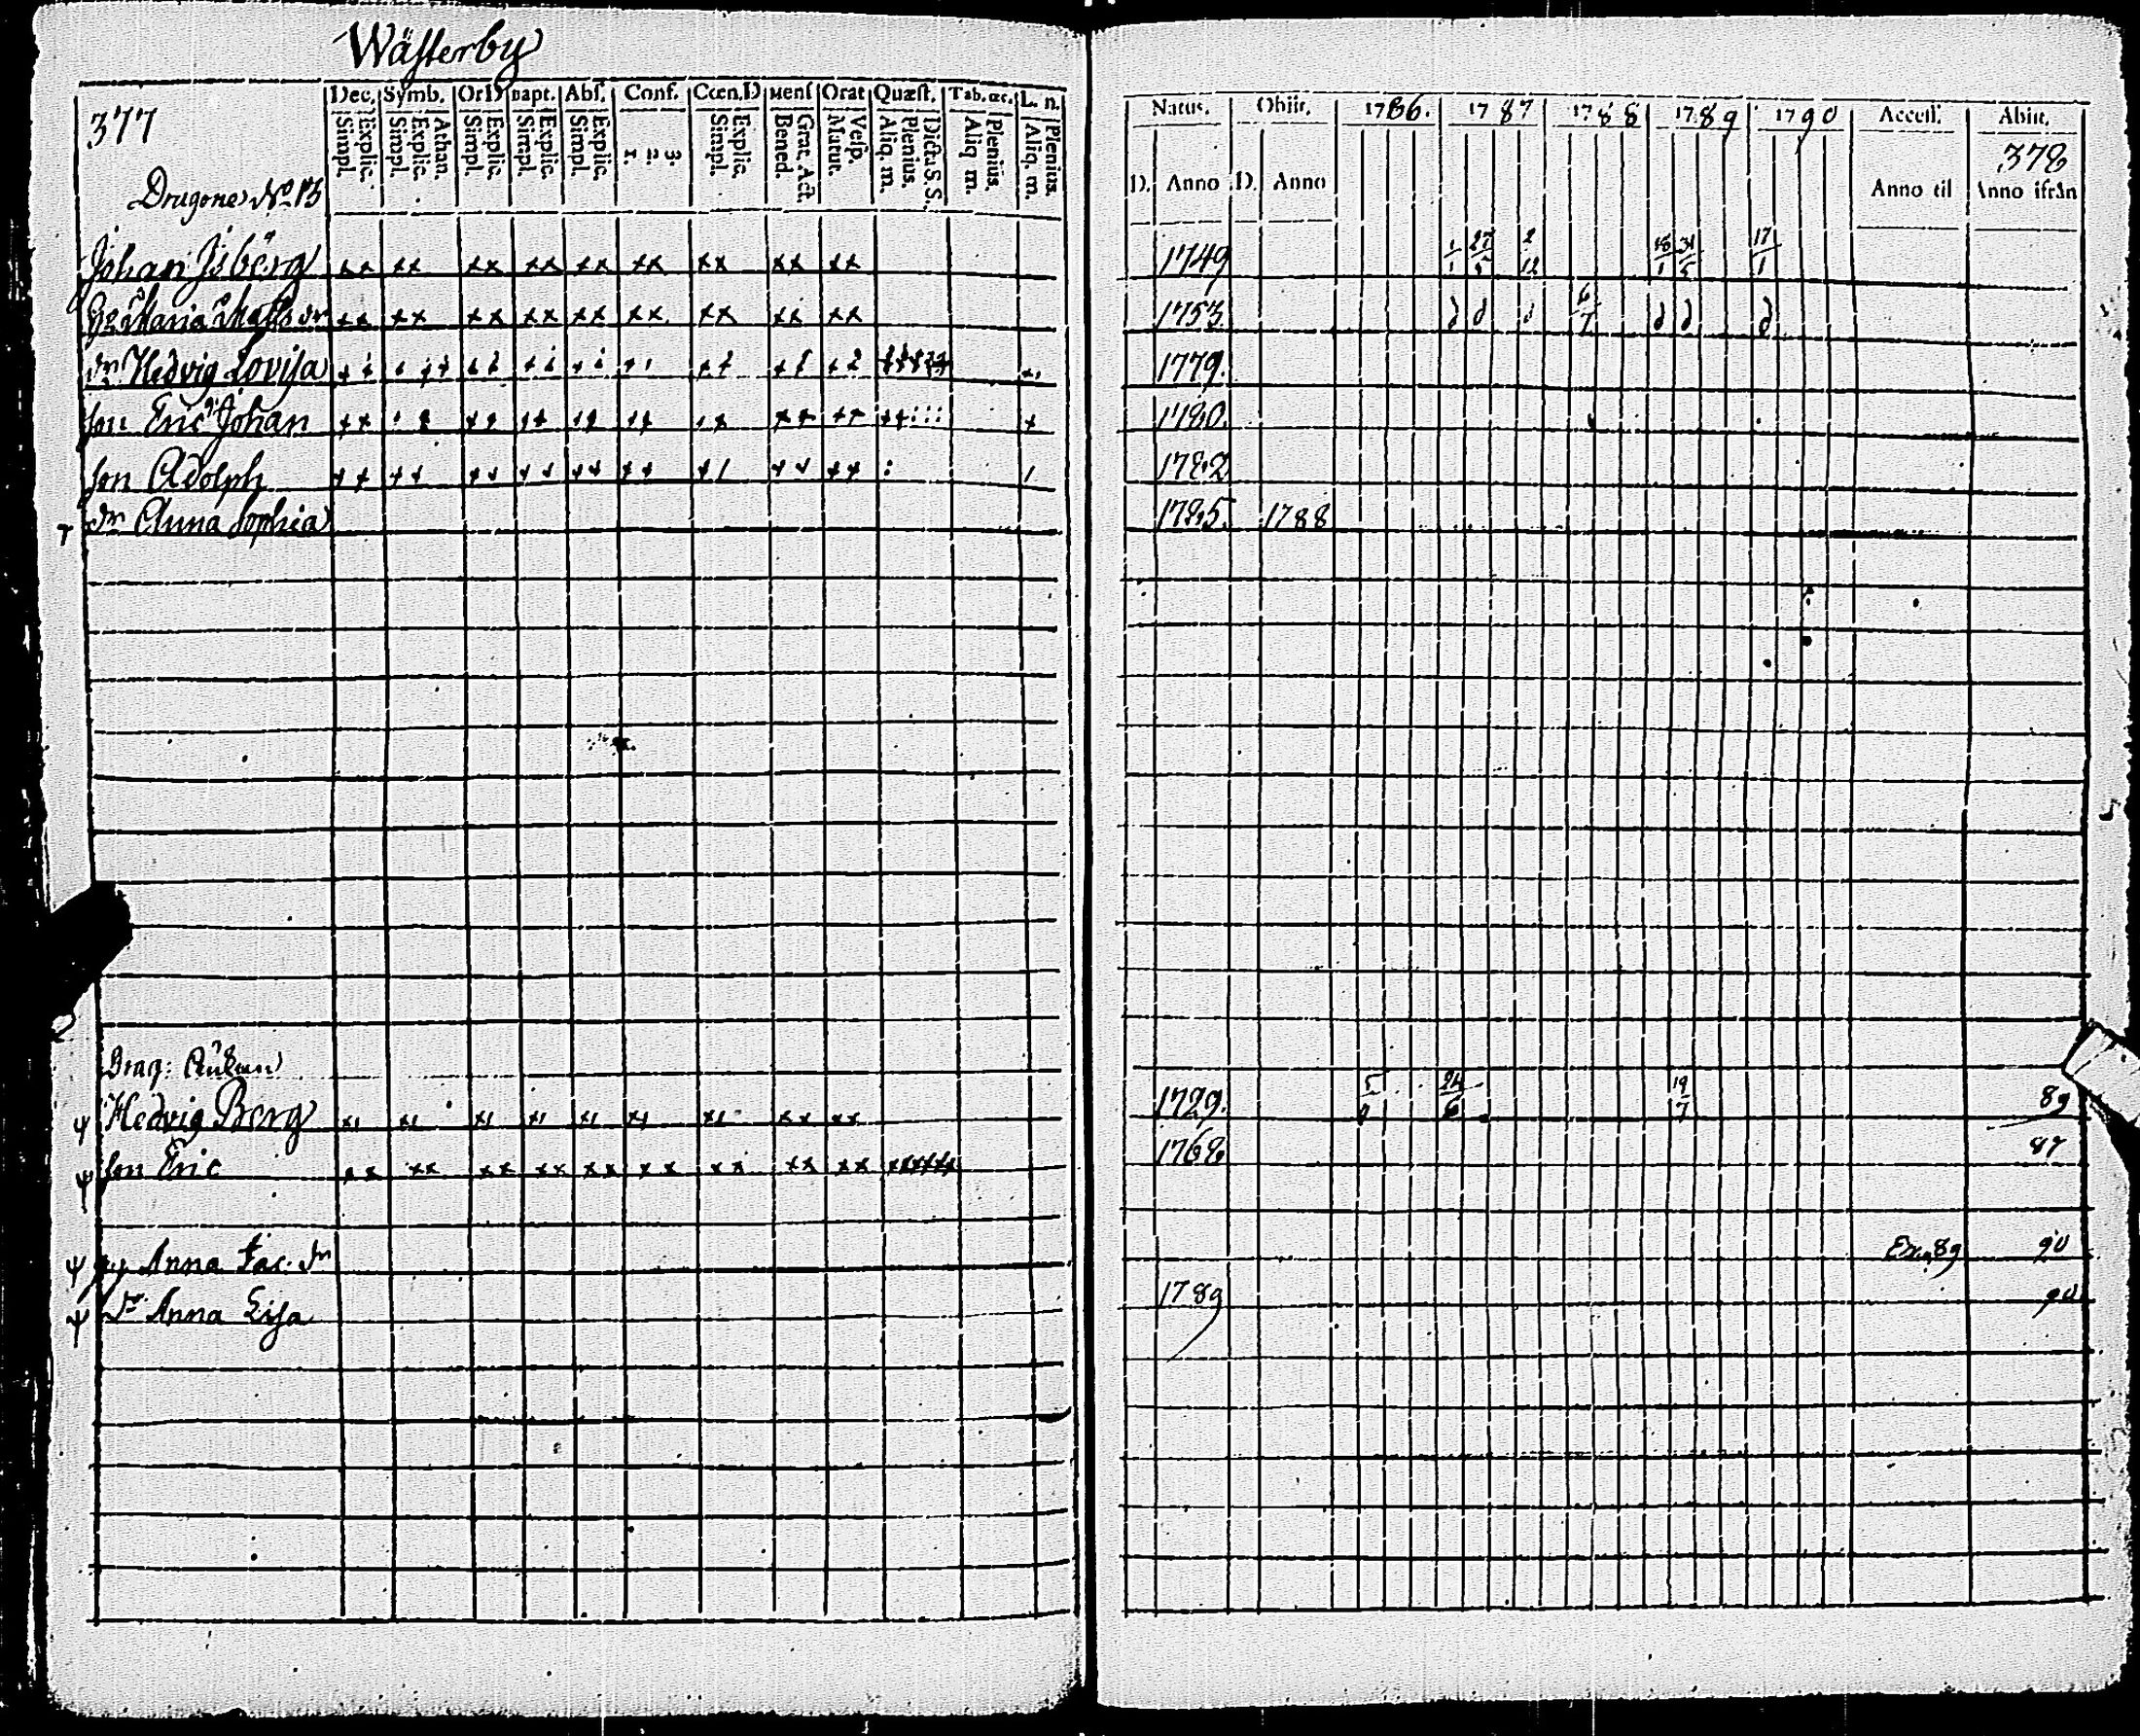 Wästerby
377
Dec. Symb. Or D bapt. Abs. Conf. Cœn. D Mens Orat Quæst. Tab. œc. L. n.
Simpl. Explic. Simpl. Explic. Athan. Simpl. Explic. Simpl. Explic. Simpl. Explic. 1. 2. 3. Simpl. Explic. Bened. Grat. Act. Matut. Vesp. Aliq. m. Plenius. Dictus S. S. Aliq m. Plenius. Aliq. m. Plenius.
Natus. Obiit. 1786. 1787 1788 1789 1790 Access. Abiit.
378
D. Anno D. Anno Anno til Anno ifrån
Dragone No 13
Johan Isberg 1749 1/1 27/5 2/12 18/1 31/5 17/1
Maria Mats dr 1753. d d d 6/7 d d d
dr Hedvig Lovisa 1779.
son Eric Johan 1780.
son Adolph 1782
dr Anna Sophia 1785. 1788
Drag: Enkan
Hedvig Berg 1729. 24/6 19/7 89
son Eric 1768 87
Anna Jac. dr 89 90
dr Anna Lisa 1789 90